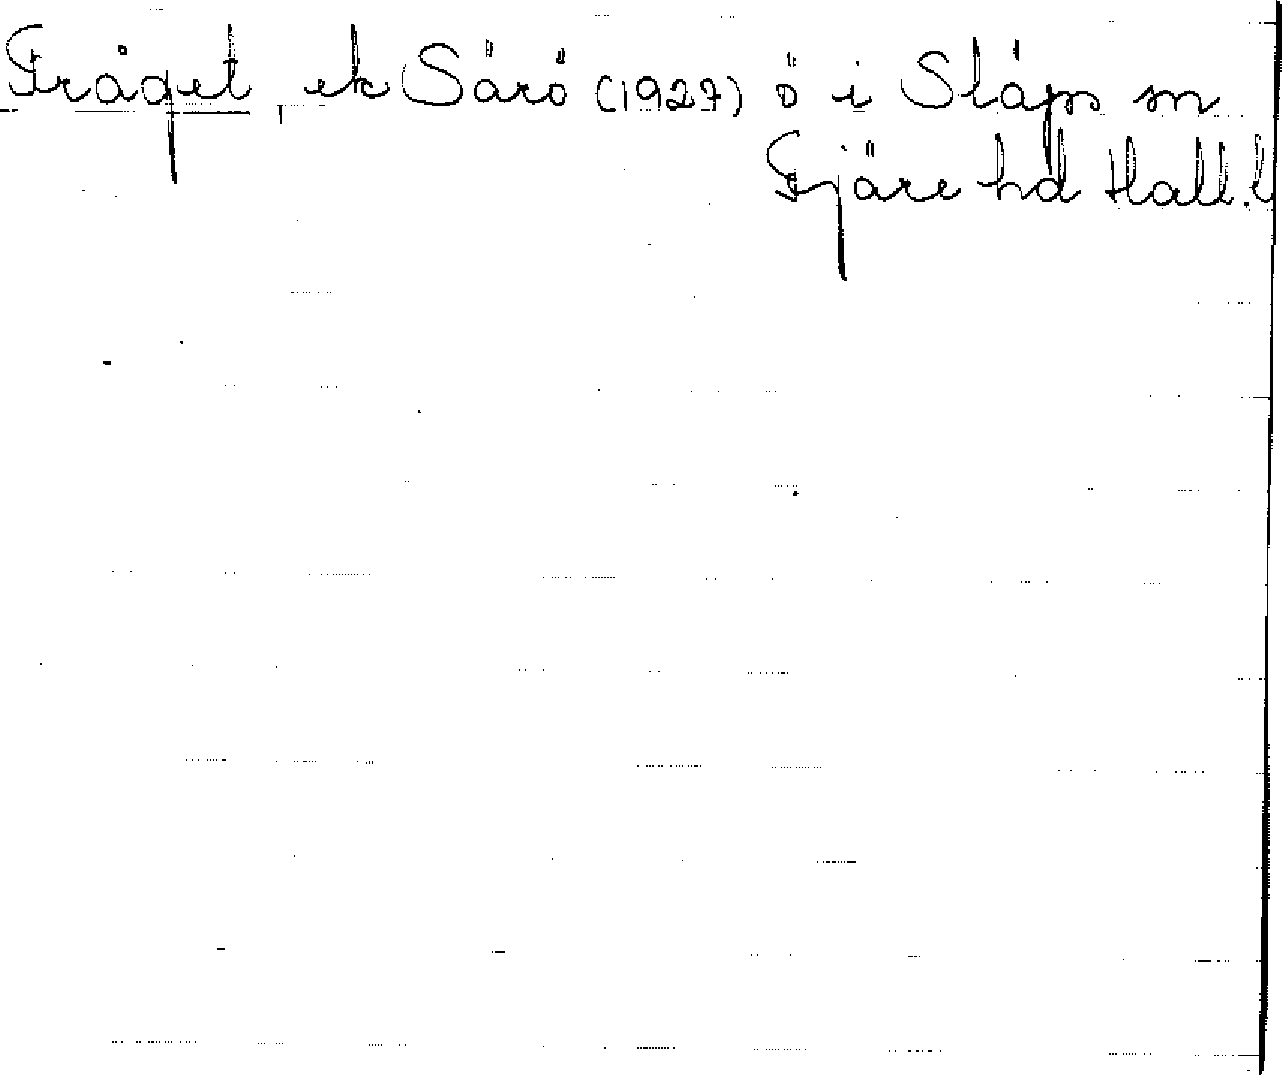 Tråget ek Särö (1927) ö i Släps sn
Fjäre hd Hall.l